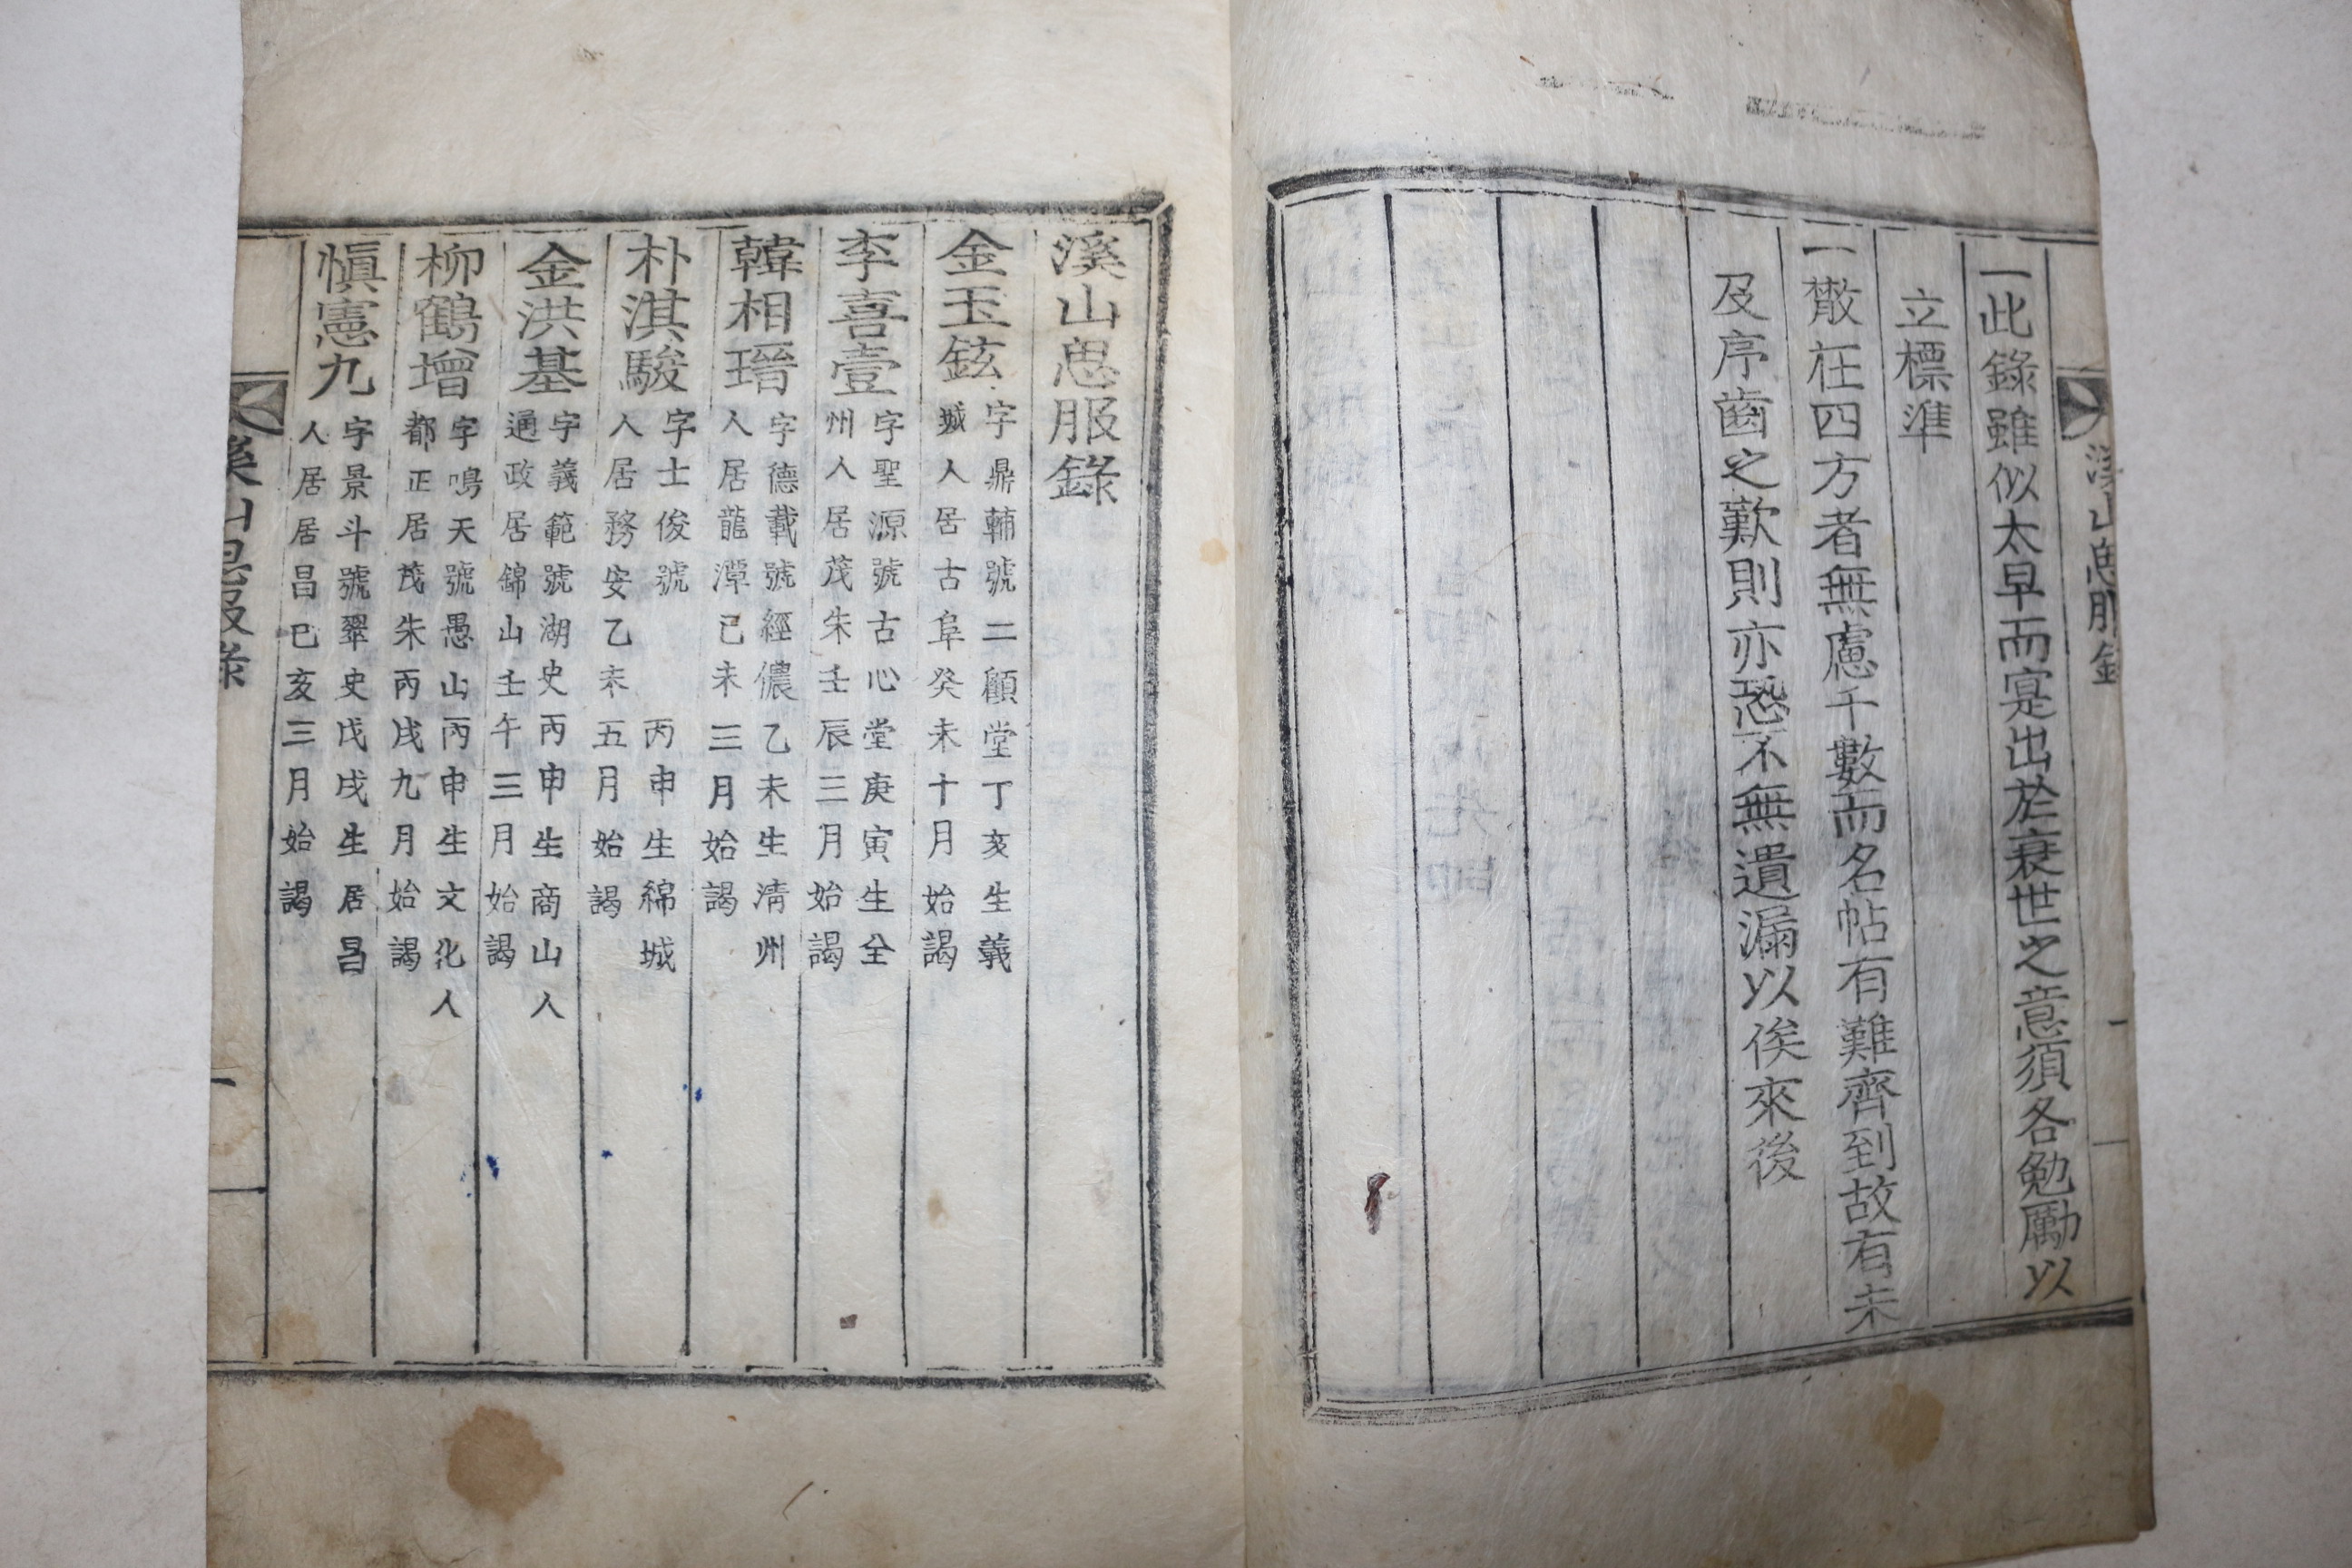 一此錄雖似太早而寔出於衰世之意須各勉勵以
立標準
一散在四方者無慮千數而名帖有難齊到故有未
及序齒之歎則亦恐不無遺漏以俟來後
溪山思服錄
金玉鉉 字鼎輔號二顧堂丁亥生義
城人居古阜癸未十月始謁
李喜壹 字聖源號古心堂庚寅生全
州人居茂朱壬辰三月始謁
韓相瑨 字德載號經儂乙未生淸州
人居龍潭已未三月始謁
朴淇駿 字士俊號 丙申生綿城
人居務安乙未五月始謁
金洪基 字義範號湖史丙申生商山人
通政居錦山壬午三月始謁
柳鶴增 字鳴天號愚山丙申生文化人
都正居茂朱丙戌九月始謁
愼憲九 字景斗號翠史戊戌生居昌
人居居昌巳亥三月始謁
溪山思服錄
一